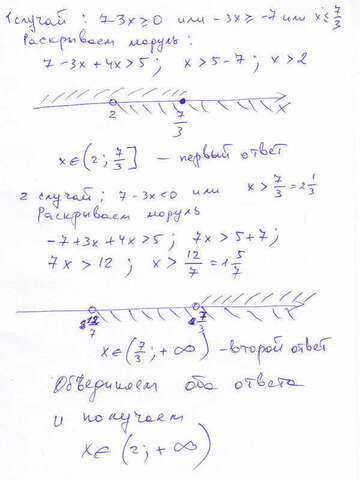 1 случай: 7-3x≥0 или -3x≥-7 или x≤7/3
Раскрываем модуль:
7-3x+4x>5; x>5-7; x>2
2 7/3 x
x∈(2; 7/3] — первый ответ
2 случай; 7-3x<0 или x>7/3=2 1/3
Раскрываем модуль
-7+3x+4x>5; 7x>5+7;
7x>12; x>12/7=1 5/7
12/7 7/3
x∈(7/3; +∞) - второй ответ
Объединяем оба ответа
и получаем
x∈(2; +∞)